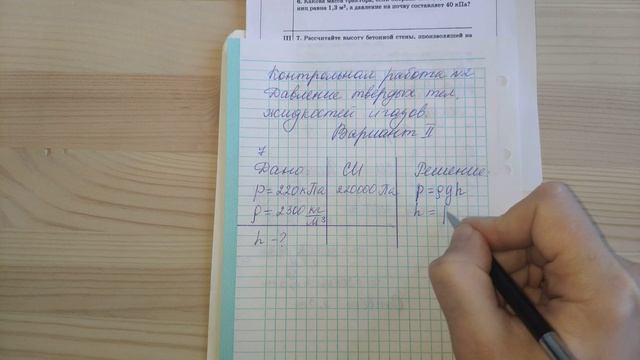 6. Какова масса трактора, если
ниц равна 1,3 м², а давление на почву составляет 40 кПа?
III 7. Рассчитайте высоту бетонной стены, производящей на
Контрольная работа №2
Давление твердых тел,
жидкостей и газов.
Вариант II
7
Дано: СИ Решение:
p = 220 кПа 220000 Па p = ρgh
ρ = 2300 кг/м³ h = p
h - ?